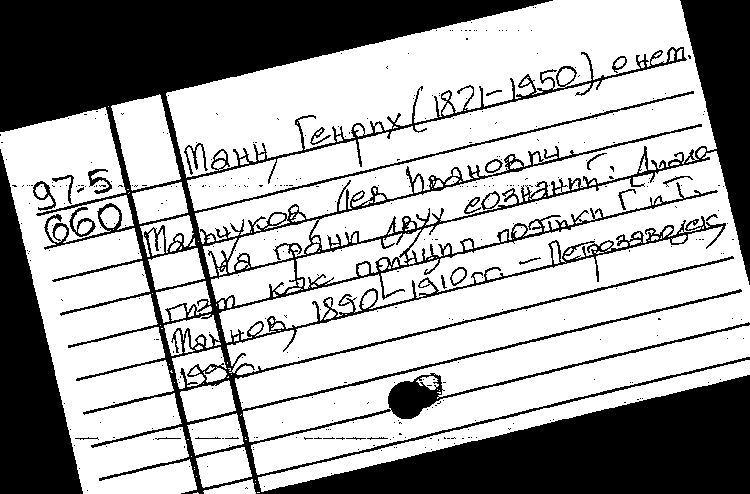 Манн, Генрих (1871–1950), о нем.
97-5
660
Мальчуков, Лев Иванович.
На грани двух сознаний: Диало-
гизм как принцип поэтики Г. и Т.
Маннов, 1890–1910 гг. – Петрозаводск,
1996.